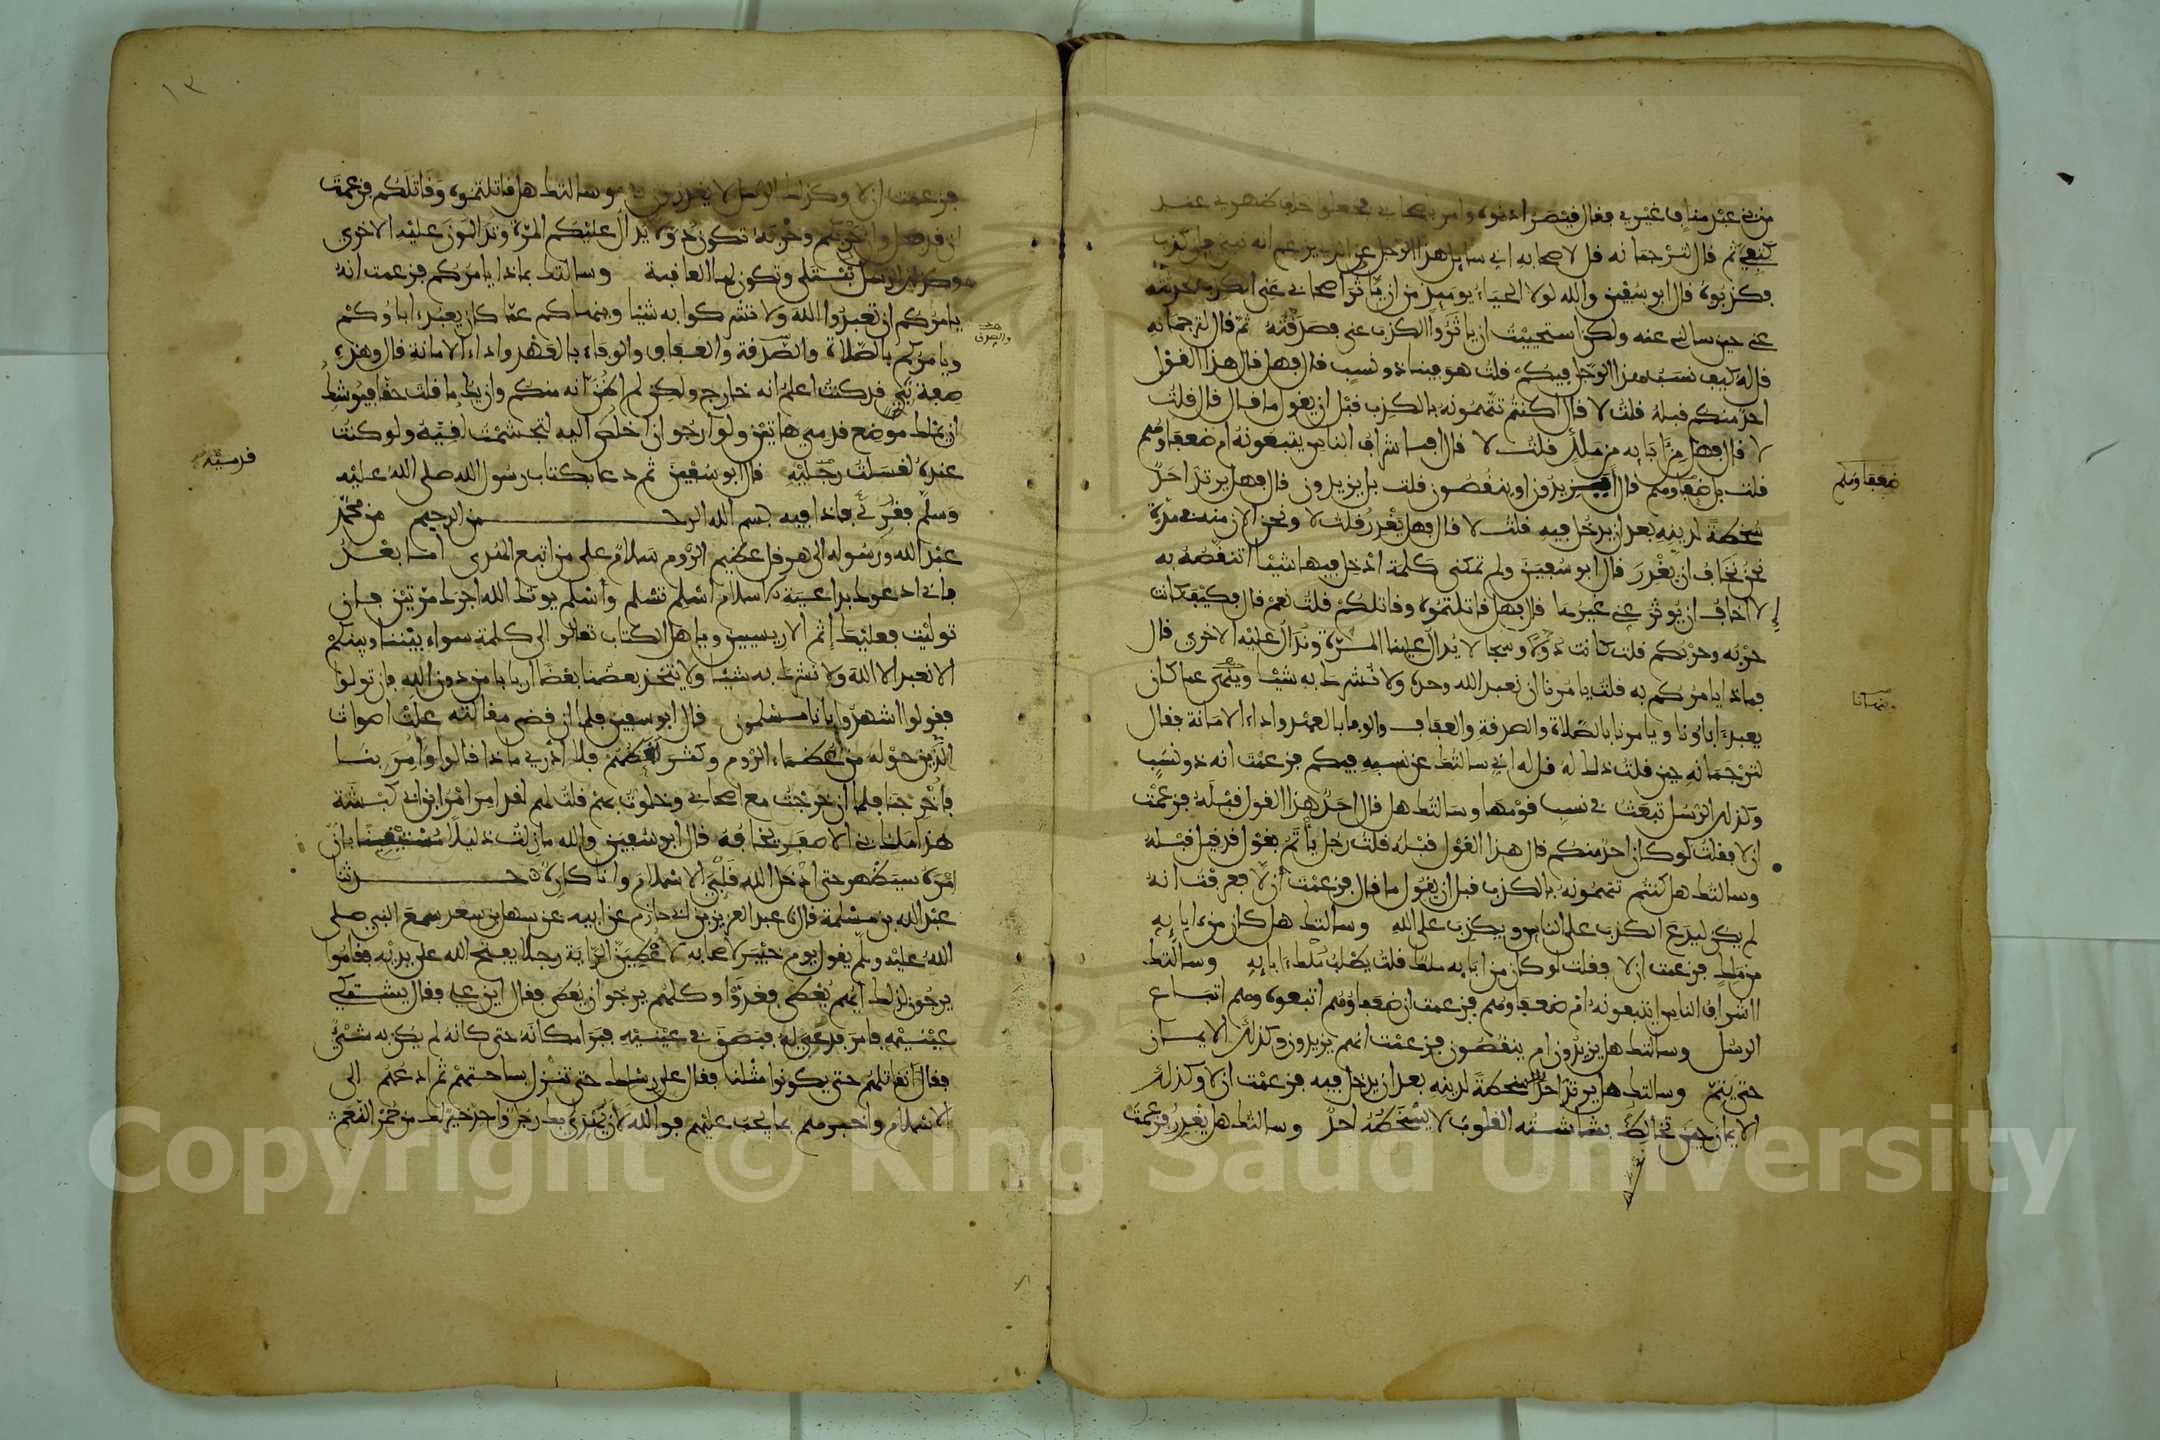 من بني عبد مناف غيري فقال قيصر ادنوه وامر باصحابي فجعلوا خلف ظهري عند
كتفي ثم قال لترجمانه قل لاصحابه اني سايل هذا الرجل عن الذي يزعم انه نبي فان كذب
فكذبوه قال ابو سفين والله لولا الحياء يوميذ من ان ياثر اصحابي عني الكذب لحدثته
عني حين سالني عنه ولكن استحييت ان ياثروا الكذب عني فصدقته ثم قال لترجمانه
قل له كيف نسب هذا الرجل فيكم قلت هو فينا ذو نسب قال فهل قال هذا القول
احد منكم قبله قلت لا قال اكنتم تتهمونه بالكذب قبل ان يقول ما قال قال قلت
لا قال فهل من ابايه من ملك قلت لا قال فاشراف الناس يتبعونه ام ضعفاوهم
قلت بل ضعفاوهم قال افيزيدون او ينقصون قلت بل يزيدون قال فهل يرتد احد
سخطة لدينه بعد ان يدخل فيه قلت لا قال فهل يغدر قلت لا ونحن الان منه في مدة
نحن نخاف ان يغدر قال ابو سفين ولم تمكني كلمة ادخل فيها شيئا اتنقصه به
لا اخاف ان يوثر عني غيرها قال فهل قاتلتموه وقاتلكم قلت نعم قال فكيف كانت
حربه وحربكم قلت كانت دولا وسجالا يدال علينا المرة وندال عليه الاخرى قال
فماذا يامركم به قلت يامرنا ان نعبد الله وحده ولا نشرك به شيئا وينهى عما كان
يعبد اباونا ويامرنا بالصلاة والصدقة والعفاف والوفا بالعهد واداء الامانة فقال
لترجمانه حين قلت ذلك له قل له اني سالتك عن نسبه فيكم فزعمت انه ذو نسب
وكذلك الرسل تبعث في نسب قومها وسالتك هل قال احد هذا القول قبله فزعمت
ان لا فقلت لو كان احد منكم قال هذا القول قبله قلت رجل ياتم بقول قد قيل قبله
وسالتك هل كنتم تتهمونه بالكذب قبل ان يقول ما قال فزعمت ان لا فعرفت انه
لم يكن ليدع الكذب على الناس ويكذب على الله وسالتك هل كان من ابايه
من ملك فزعمت ان لا فقلت لو كان من ابايه ملك قلت يطلب ملك ابايه وسالتك
اشراف الناس يتبعونه ام ضعفاوهم فزعمت ان ضعفاوهم اتبعوه وهم اتباع
الرسل وسالتك هل يزيدون ام ينقصون فزعمت انهم يزيدون وكذلك الايمان
حتى يتم وسالتك هل يرتد احد سخطة لدينه بعد ان يدخل فيه فزعمت ان لا وكذلك
الايمان حين تخالط بشاشته القلوب لا يسخطه احد وسالتك هل يغدر فزعمت
ضعفاوهم
وينهانا
١٣
فزعمت ان لا وكذلك الرسل لا يغدرون وسالتك هل قاتلتموه وقاتلكم فزعمت
ان قد فعل وان حربكم وحربه تكون دولا يدال عليكم المرة وتدالون عليه الاخرى
وكذلك الرسل تبتلى وتكون لها العاقبة وسالتك بماذا يامركم فزعمت انه
يامركم ان تعبدوا الله ولا تشركوا به شيئا وينهاكم عما كان يعبد اباوكم
ويامركم بالصلاة والصدقة والعفاف والوفاء بالعهد واداء الامانة قال وهذه
صفة نبي قد كنت اعلم انه خارج ولكن لم اظن انه منكم وان يك ما قلت حقا فيوشك
ان يملك موضع قدمي هاتين ولو ارجو ان اخلص اليه لتجشمت لقيه ولو كنت
عنده لغسلت رجليه قال ابو سفين ثم دعا بكتاب رسول الله صلى الله عليه
وسلم فقرئ فاذا فيه بسم الله الرحمن الرحيم من محمد
عبد الله ورسوله الى هرقل عظيم الروم سلام على من اتبع الهدى اما بعد
فاني ادعوك بداعية الاسلام اسلم تسلم واسلم يوتك الله اجرك مرتين فان
توليت فعليك اثم الاريسيين ويا اهل الكتاب تعالوا الى كلمة سواء بيننا وبينكم
الا نعبد الا الله ولا نشرك به شيئا ولا يتخذ بعضنا بعضا اربابا من دون الله فان تولوا
فقولوا اشهدوا بانا مسلمون قال ابو سفين فلما ان قضى مقالته علت اصوات
الذين حوله من عظماء الروم وكثر لغطهم فلا ادري ماذا قالوا وامر بنا
فاخرجنا فلما ان خرجت مع اصحابي وخلوت بهم قلت لهم لقد امر امر ابن ابي كبشة
هذا ملك بني الاصفر يخافه قال ابو سفين والله ما زلت ذليلا مستيقنا بان
امره سيظهر حتى ادخل الله قلبي الاسلام وانا كاره حدثنا
عبد الله بن مسلمة قال نا عبد العزيز بن ابي حازم عن ابيه عن سهل بن سعد سمع النبي صلى
الله عليه وسلم يقول يوم خيبر لاصحابه لاعطين الراية رجلا يفتح الله على يديه فقاموا
يرجون لذلك ايهم يعطى فغدوا وكلهم يرجو ان يعطى فقال اين علي فقال يشتكي
عينيه فامر فدعي له فبصق في عينيه فبرا مكانه حتى كانه لم يكن به شيء
فقال انقاتلهم حتى يكونوا مثلنا فقال على رسلك حتى تنزل بساحتهم ثم ادعهم الى
الاسلام واخبرهم بما يجب عليهم فوالله لان يهدى بك رجل واحد خير لك من حمر النعم
والصدق
قدميه
Copyright © King Saud University